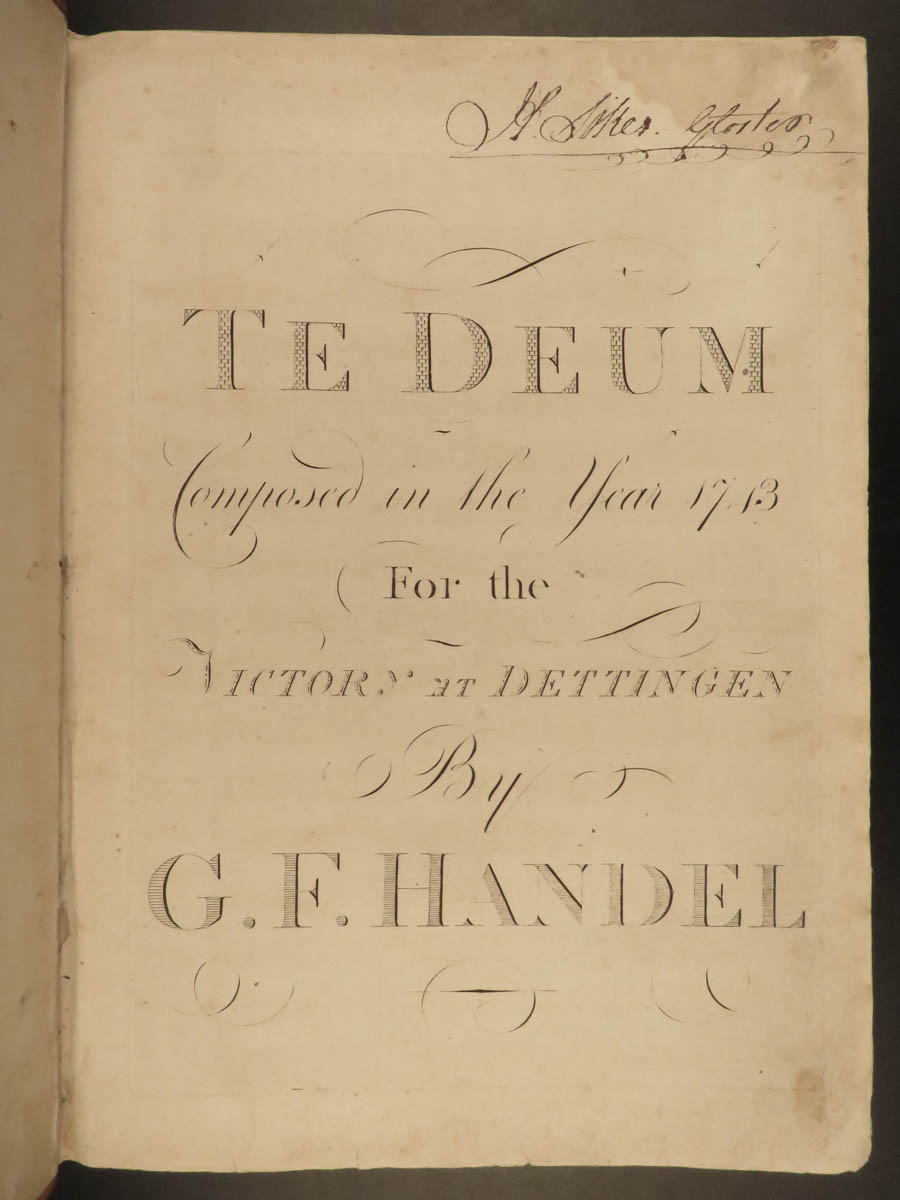 H. Siker. Gloster
TE DEUM
Composed in the Year 1743
For the
VICTORY AT DETTINGEN
By
G. F. HANDEL